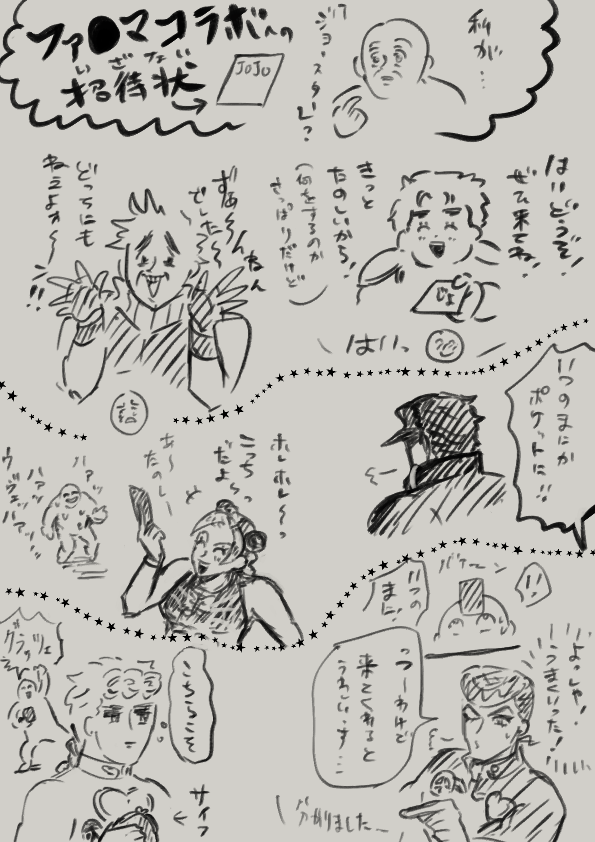 ファ●マコラボへの
いざない
招待状
JOJO
私が…
ジョースター?
はいどうぞ!
ぜひ来てね!
きっと
たのしいから!
(何をするのか
さっぱりだけど)
じょ
はいっ
ざぁ〜んねん
でしたぁ〜
どっちにも
ねぇよォ〜!!
いつのまにか
ポケットに!!
ホレホレ〜っ
こっち
だよ〜っ
あ〜
たのし〜
ハァッ
ハァッ
バァーン
いつの
まに!
!!
よっしゃ!
うまくいった!
っつーわけで
来てくれると
うれしいっす…
分かりました…
こちらこそ
グラッツェ
サイフ